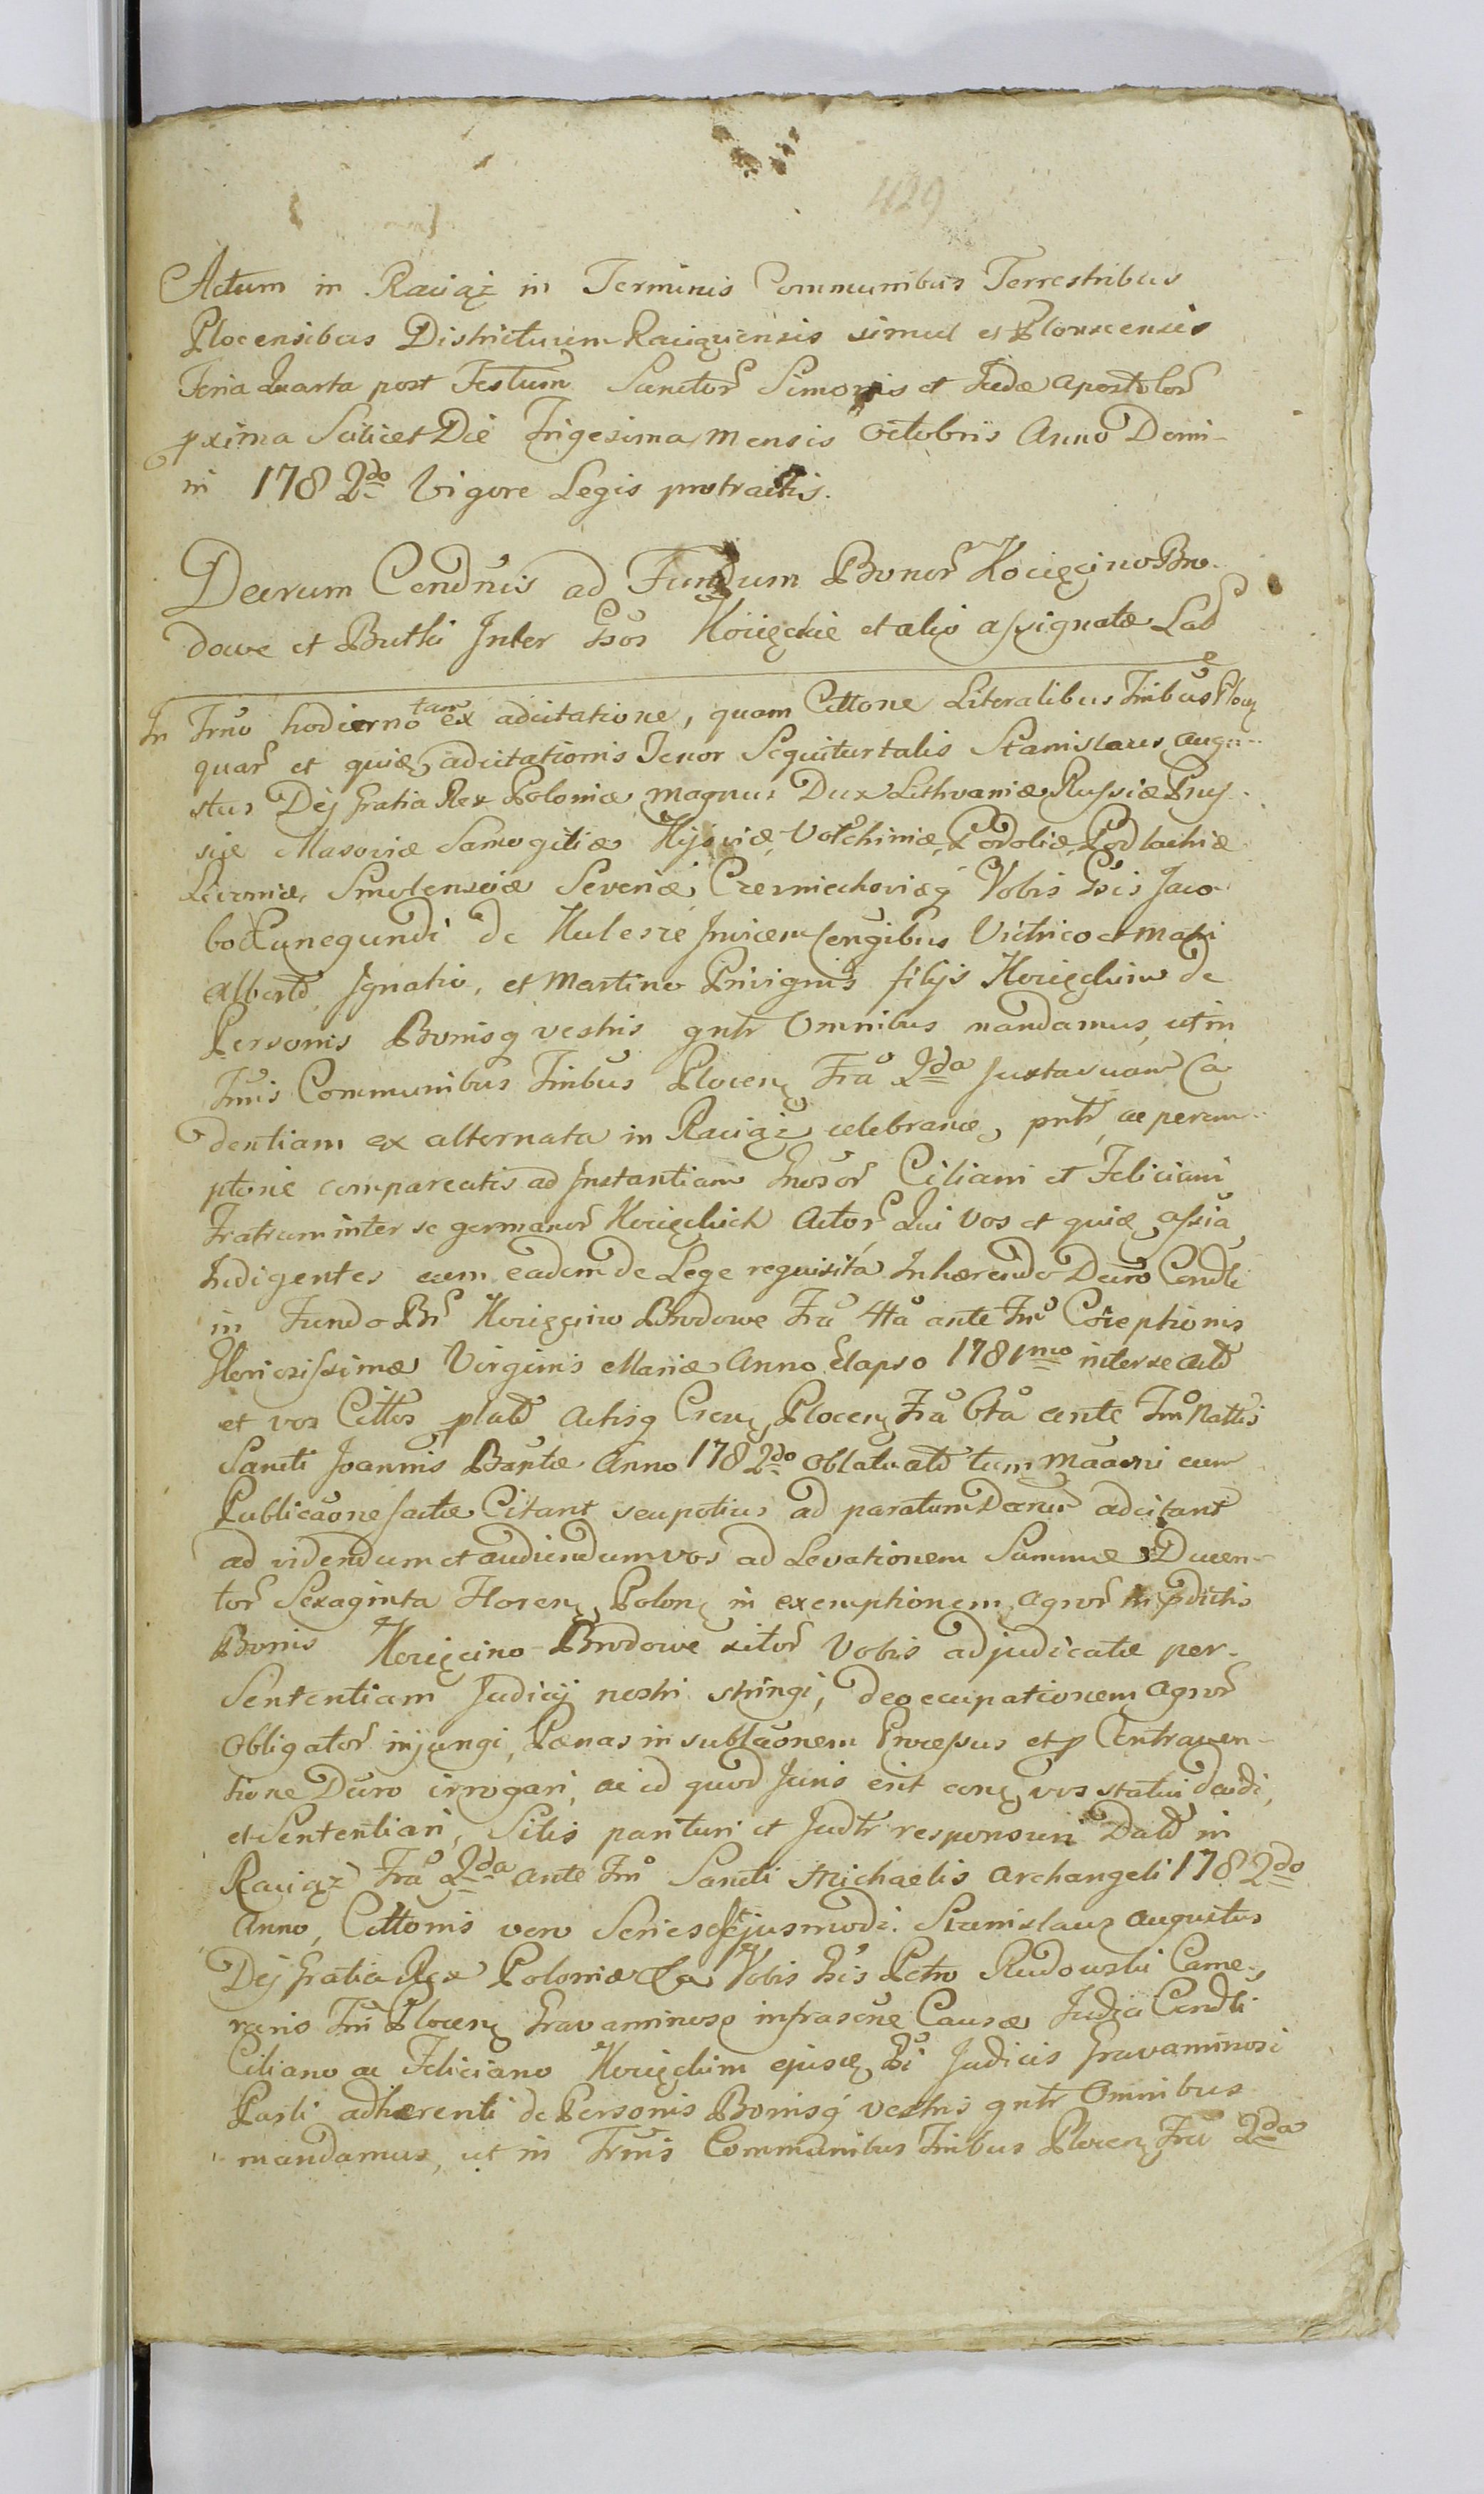 429
Actum in Raciąż in Terminis Communibus Terrestribus
Plocensibus Districtuum Raciąziensis simul et Plonscensis
Feria Quarta post Festum Sanctor Simonis et Judæ Apostolor
pxima Scilicet Die Trigesima Mensis Octobris Anno Domi-
ni 1782do Vigore Legis protractis.
Decrum Condnis ad Fundum Bonor Kocięcino Bro-
dowe et Butki Inter Gsos Kocięckie et alio assignatæ Lad
In Trno hodierno tam ex adcitatione, quam Cittone Literalibus Tribus Plocen
quar et quidē adcitationis Tenor Sequitur talis Stanislaus Augu-
stus Dej Gratia Rex Poloniæ Magnus Dux Lithvaniæ Russiæ Prus-
siæ Masoviæ Samogitiæ Kijoviæ Volchiniæ Podoliæ Podlachiæ
Livoniæ Smolensciæ Severiæ Czerniechoviæq Vobis Gsis Jaco
bo Cunegundi de Kulesze Invicem Congibus Victrico et Matri
Alberto Ignatio, et Martino Privignis filijs Kocięckim de
Personis Bonisq vestris gntr Omnibus mandamus, ut in
Trnis Communibus Tribus Plocen Fria 2da Juxta suam Ca
dentiam ex alternata in Raciąż celebranæ, pntr, ac perem-
ptorie compareatis ad Instantiam Gnosor Ciliani et Feliciani
Fratrum inter se germanor Kocięckich Actor Qui Vos et quidē assia
Indigentes cum eadem de Lege requisita Inhærendo Decro Condli
in Fundo Br Kocięcino Brodowe Fria 4ta ante Fm Coceptionis
Gloriosissimæ Virginis Mariæ Anno Elapso 1781mo inter se Actos
et vos Cittos plato Actisq Cren Plocen Fria 6ta ante Fm Nattis
Sancti Joannis Baptæ Anno 1782do Oblato atd tum Maacni cum
Publicaone factæ Citant seu potius ad paratum Decrum adcitant
ad videndum et audiendum vos ad Levationem Summæ Ducen-
tor Sexaginta Floren, Polon in exemptionem Agror in pdictis
Bonis Kocięcino Brodowe sitor Vobis adjudicatæ per
Sententiam Judicij nostri stringi, deoccupationem Agror
Obligator injungi, Pænas in sublaonem Processus et p Contraven-
tione Decro irrogari, ac id quod Juris erit conq vos statui decidi,
et Sententiari, Sitis parituri et Judtr responsuri Datd in
Raciąż Fria 2da ante Fm Sancti Michaelis Archangeli 1782do
Anno, Cittonis vero Series est ejusmodi. Stanislaus Augustus
Dej Gratia Rex Poloniæ &a Vobis Gsis Petro Rudowski Came-
rario Tri Plocen Gravaminoso infrascne Causæ Judici Condli
Ciliano ac Feliciano Kocięckim ejusq Gsi Judicis Gravaminosi
Parti adhærenti de Personis Bonisq vestris gntr Omnibus
mandamus, ut in Trnis Communibus Tribus Plocen Fria 2da